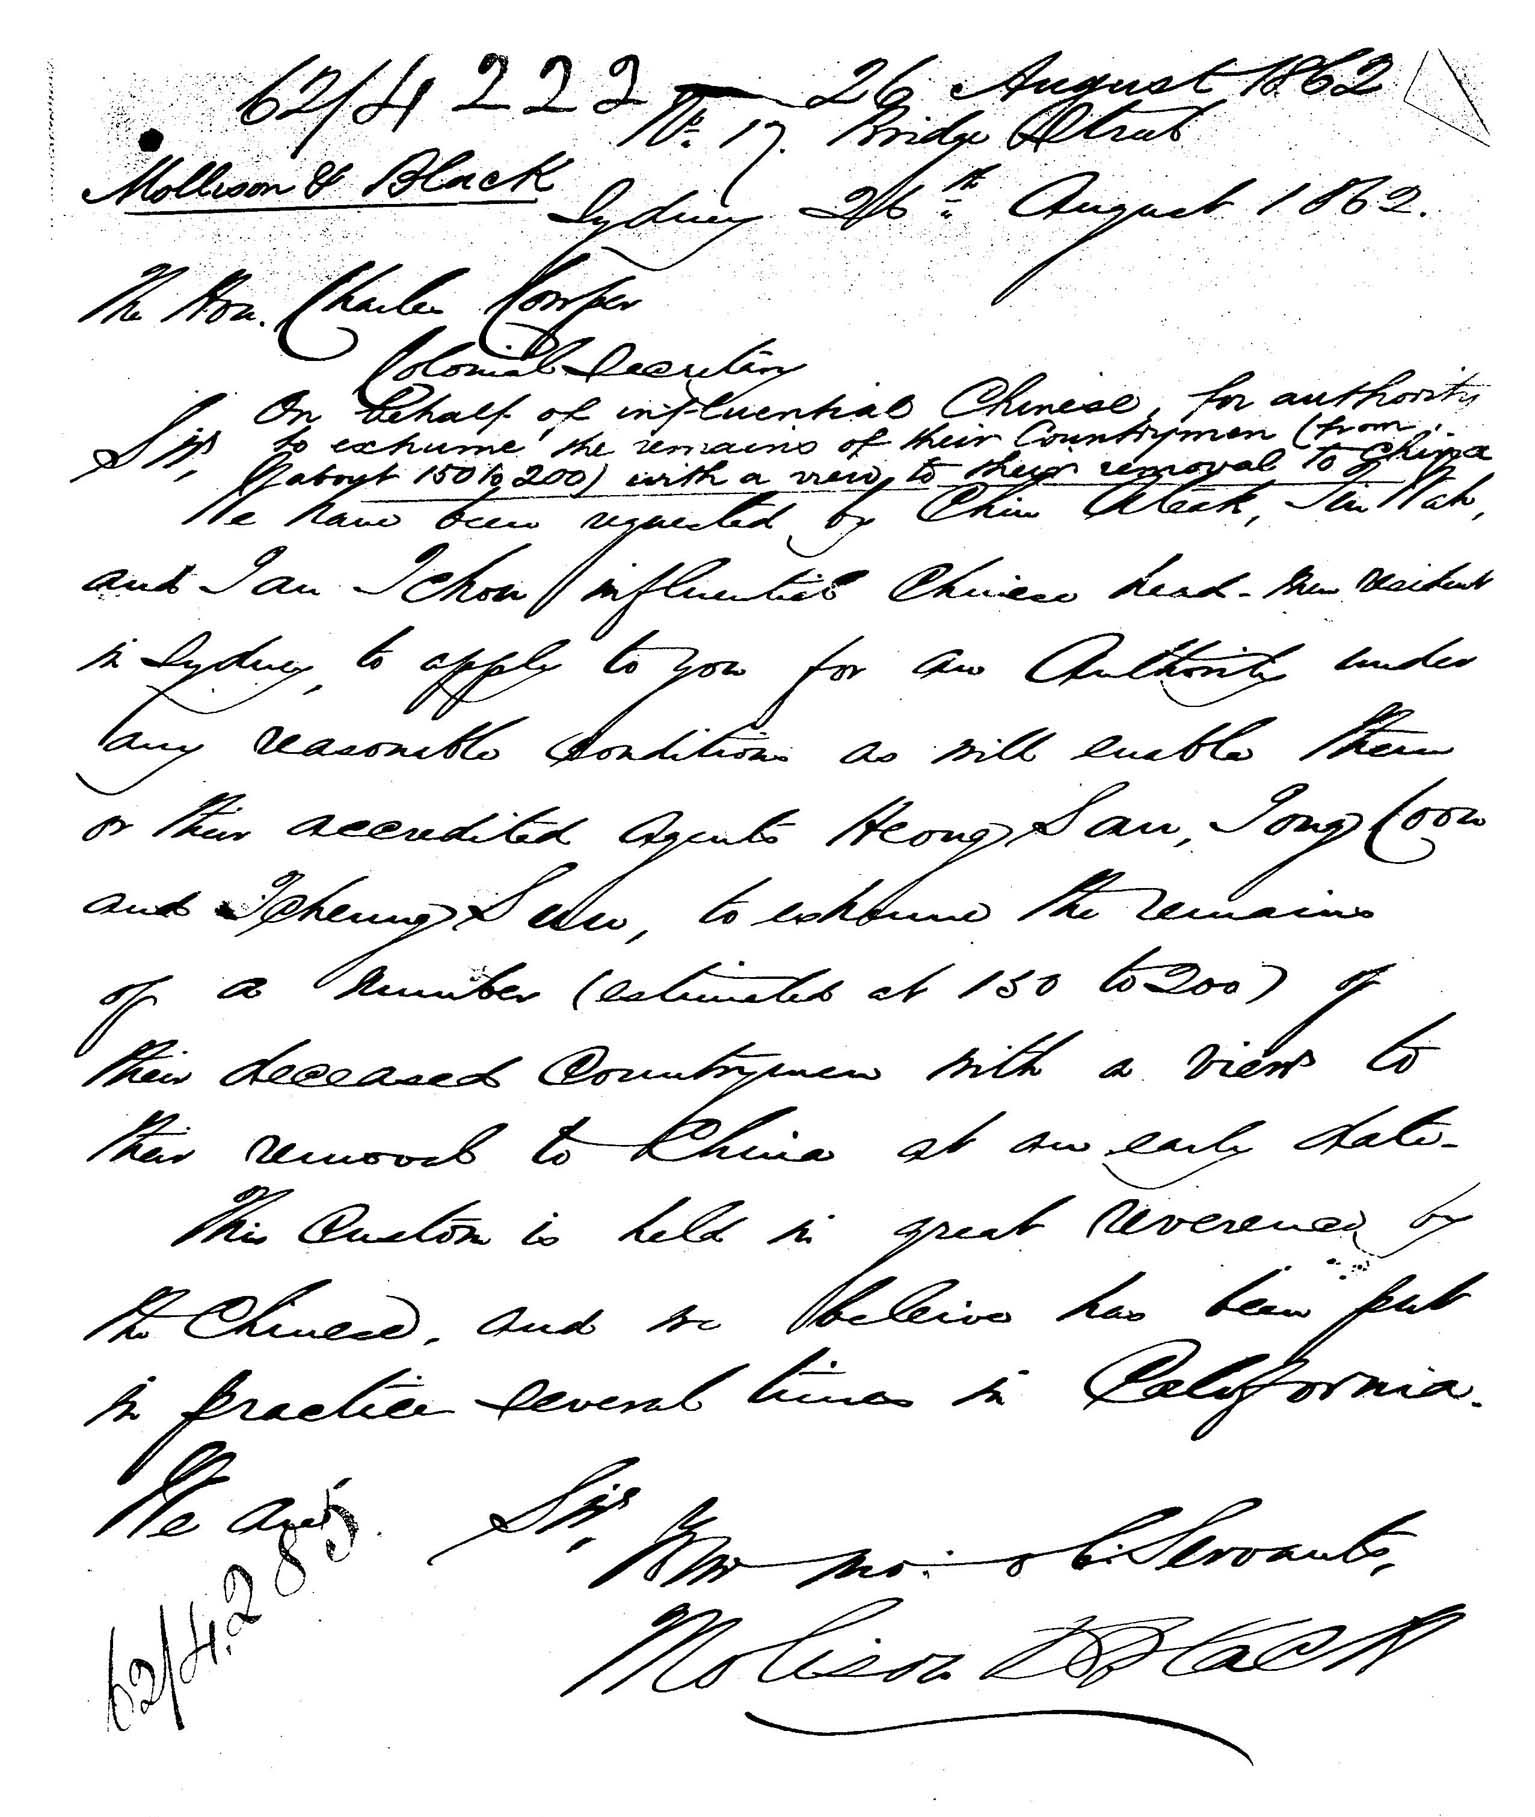 62/4222 — 26 August 1862
No. 17. Bridge Street
Mollison & Black
Sydney 26th August 1862.
The Hon. Charles Cowper
Colonial Secretary
On behalf of influential Chinese, for authority
to exhume the remains of their Countrymen (from
Sir, (about 150 to 200) with a view to their removal to China
We have been requested by Chin Ateak, Tin Wah,
and Tchou influential Chinese head-men resident
in Sydney, to apply to you for an Authority under
any reasonable conditions as will enable them
or their accredited Agents Heong San, Tong Coon
and Tcheung Suu, to exhume the remains
of a number (estimated at 150 to 200) of
their deceased Countrymen with a view to
their removal to China at an early date.
This Custom is held in great reverence by
the Chinese, and we beleive has been put
in practice several times in California.
We are Sir,
Your mo: ob. Servants,
Molison & Black
62/4285